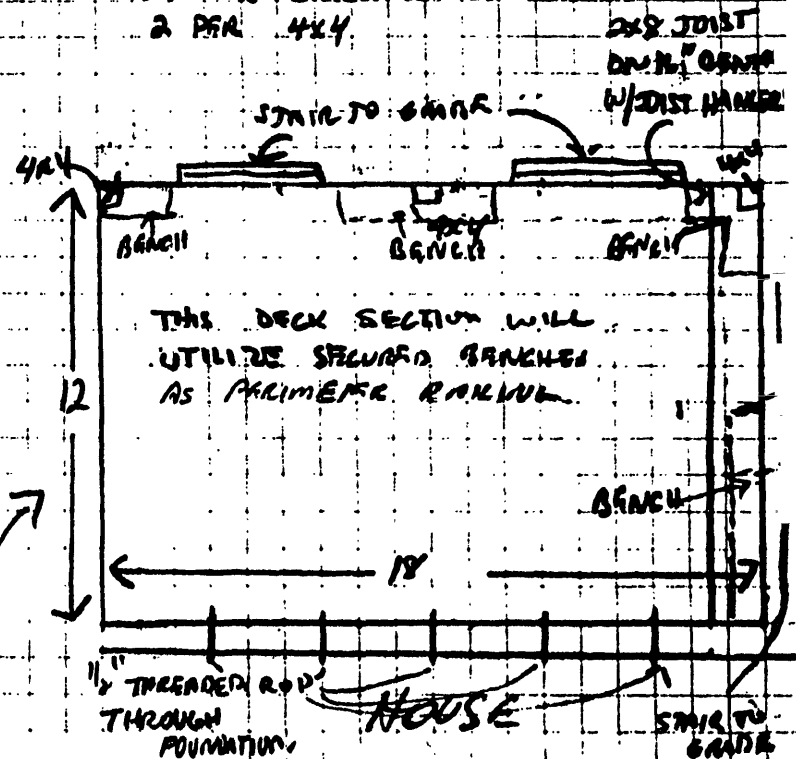 2 PER 4x4
2x8 JOIST
ON 16" CENTER
W/JOIST HANGER
STAIR TO GRADE
4x4
4x4
BENCH
4x4
BENCH
BENCH
THIS DECK SECTION WILL
UTILIZE SECURED BENCHES
AS PERIMETER RAILING
12
BENCH
18
1/2" THREADED ROD
THROUGH
FOUNDATION
HOUSE
STAIR TO
GRADE